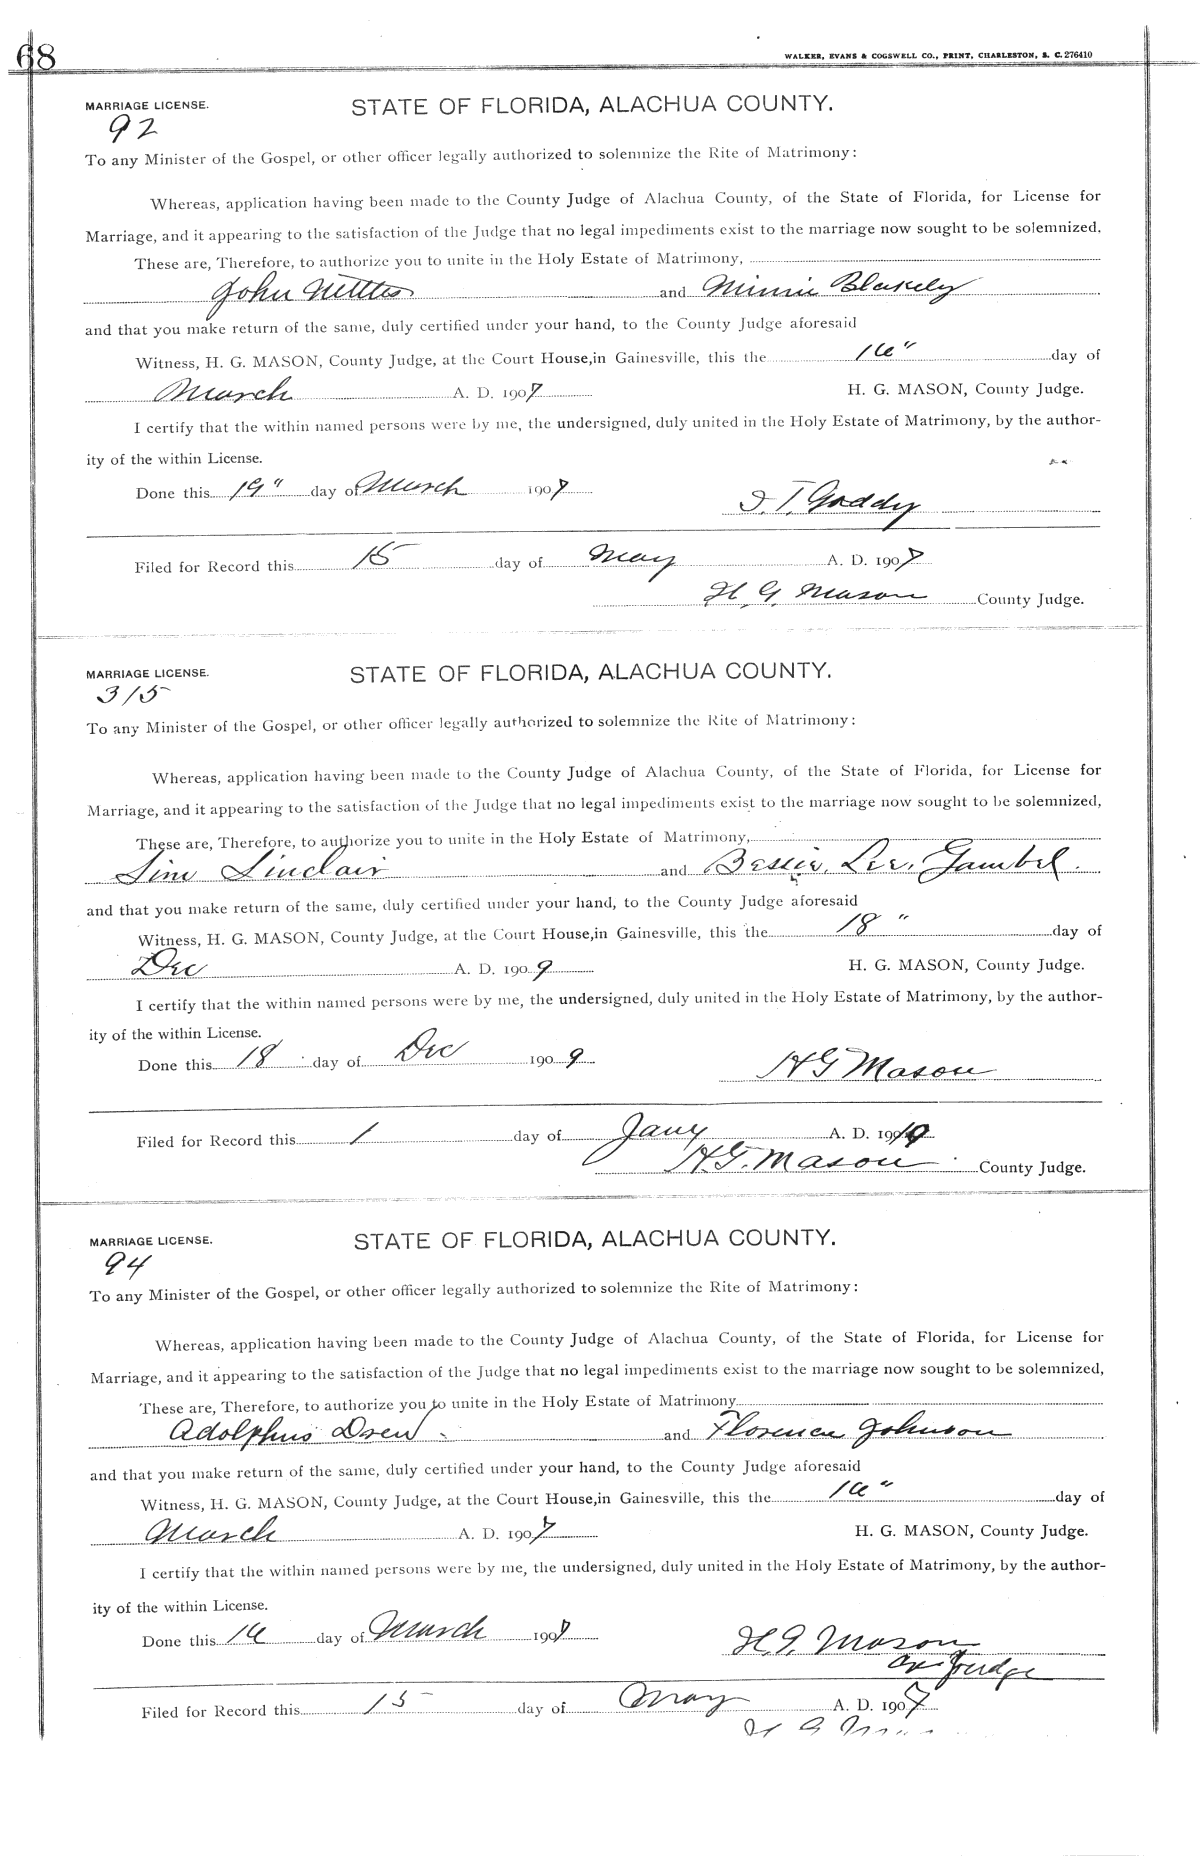 68
WALKER, EVANS & COGSWELL CO., PRINT, CHARLESTON, S. C. 276410
MARRIAGE LICENSE. STATE OF FLORIDA, ALACHUA COUNTY.
92
To any Minister of the Gospel, or other officer legally authorized to solemnize the Rite of Matrimony:
Whereas, application having been made to the County Judge of Alachua County, of the State of Florida, for License for
Marriage, and it appearing to the satisfaction of the Judge that no legal impediments exist to the marriage now sought to be solemnized.
These are, Therefore, to authorize you to unite in the Holy Estate of Matrimony,
John Nettles and Minnie Blakely
and that you make return of the same, duly certified under your hand, to the County Judge aforesaid
Witness, H. G. MASON, County Judge, at the Court House, in Gainesville, this the 16" day of
March A. D. 1907 H. G. MASON, County Judge.
I certify that the within named persons were by me, the undersigned, duly united in the Holy Estate of Matrimony, by the author-
ity of the within License.
Done this 19" day of March 1907
T. Gaddy
Filed for Record this 15 day of May A. D. 1907
H. G. Mason County Judge.
MARRIAGE LICENSE. STATE OF FLORIDA, ALACHUA COUNTY.
315
To any Minister of the Gospel, or other officer legally authorized to solemnize the Rite of Matrimony:
Whereas, application having been made to the County Judge of Alachua County, of the State of Florida, for License for
Marriage, and it appearing to the satisfaction of the Judge that no legal impediments exist to the marriage now sought to be solemnized,
These are, Therefore, to authorize you to unite in the Holy Estate of Matrimony,
Sim Sinclair and Bessie Lee Gambel.
and that you make return of the same, duly certified under your hand, to the County Judge aforesaid
Witness, H. G. MASON, County Judge, at the Court House, in Gainesville, this the 18" day of
Dec A. D. 1909 H. G. MASON, County Judge.
I certify that the within named persons were by me, the undersigned, duly united in the Holy Estate of Matrimony, by the author-
ity of the within License.
Done this 18 day of Dec 1909
H G Mason
Filed for Record this 1 day of Jany A. D. 1910
H. G. Mason County Judge.
MARRIAGE LICENSE. STATE OF FLORIDA, ALACHUA COUNTY.
94
To any Minister of the Gospel, or other officer legally authorized to solemnize the Rite of Matrimony:
Whereas, application having been made to the County Judge of Alachua County, of the State of Florida, for License for
Marriage, and it appearing to the satisfaction of the Judge that no legal impediments exist to the marriage now sought to be solemnized,
These are, Therefore, to authorize you to unite in the Holy Estate of Matrimony
Adolphus Drew and Florence Johnson
and that you make return of the same, duly certified under your hand, to the County Judge aforesaid
Witness, H. G. MASON, County Judge, at the Court House, in Gainesville, this the 16" day of
March A. D. 1907 H. G. MASON, County Judge.
I certify that the within named persons were by me, the undersigned, duly united in the Holy Estate of Matrimony, by the author-
ity of the within License.
Done this 16 day of March 1907
H. G. Mason
Co Judge
Filed for Record this 15 day of May A. D. 1907